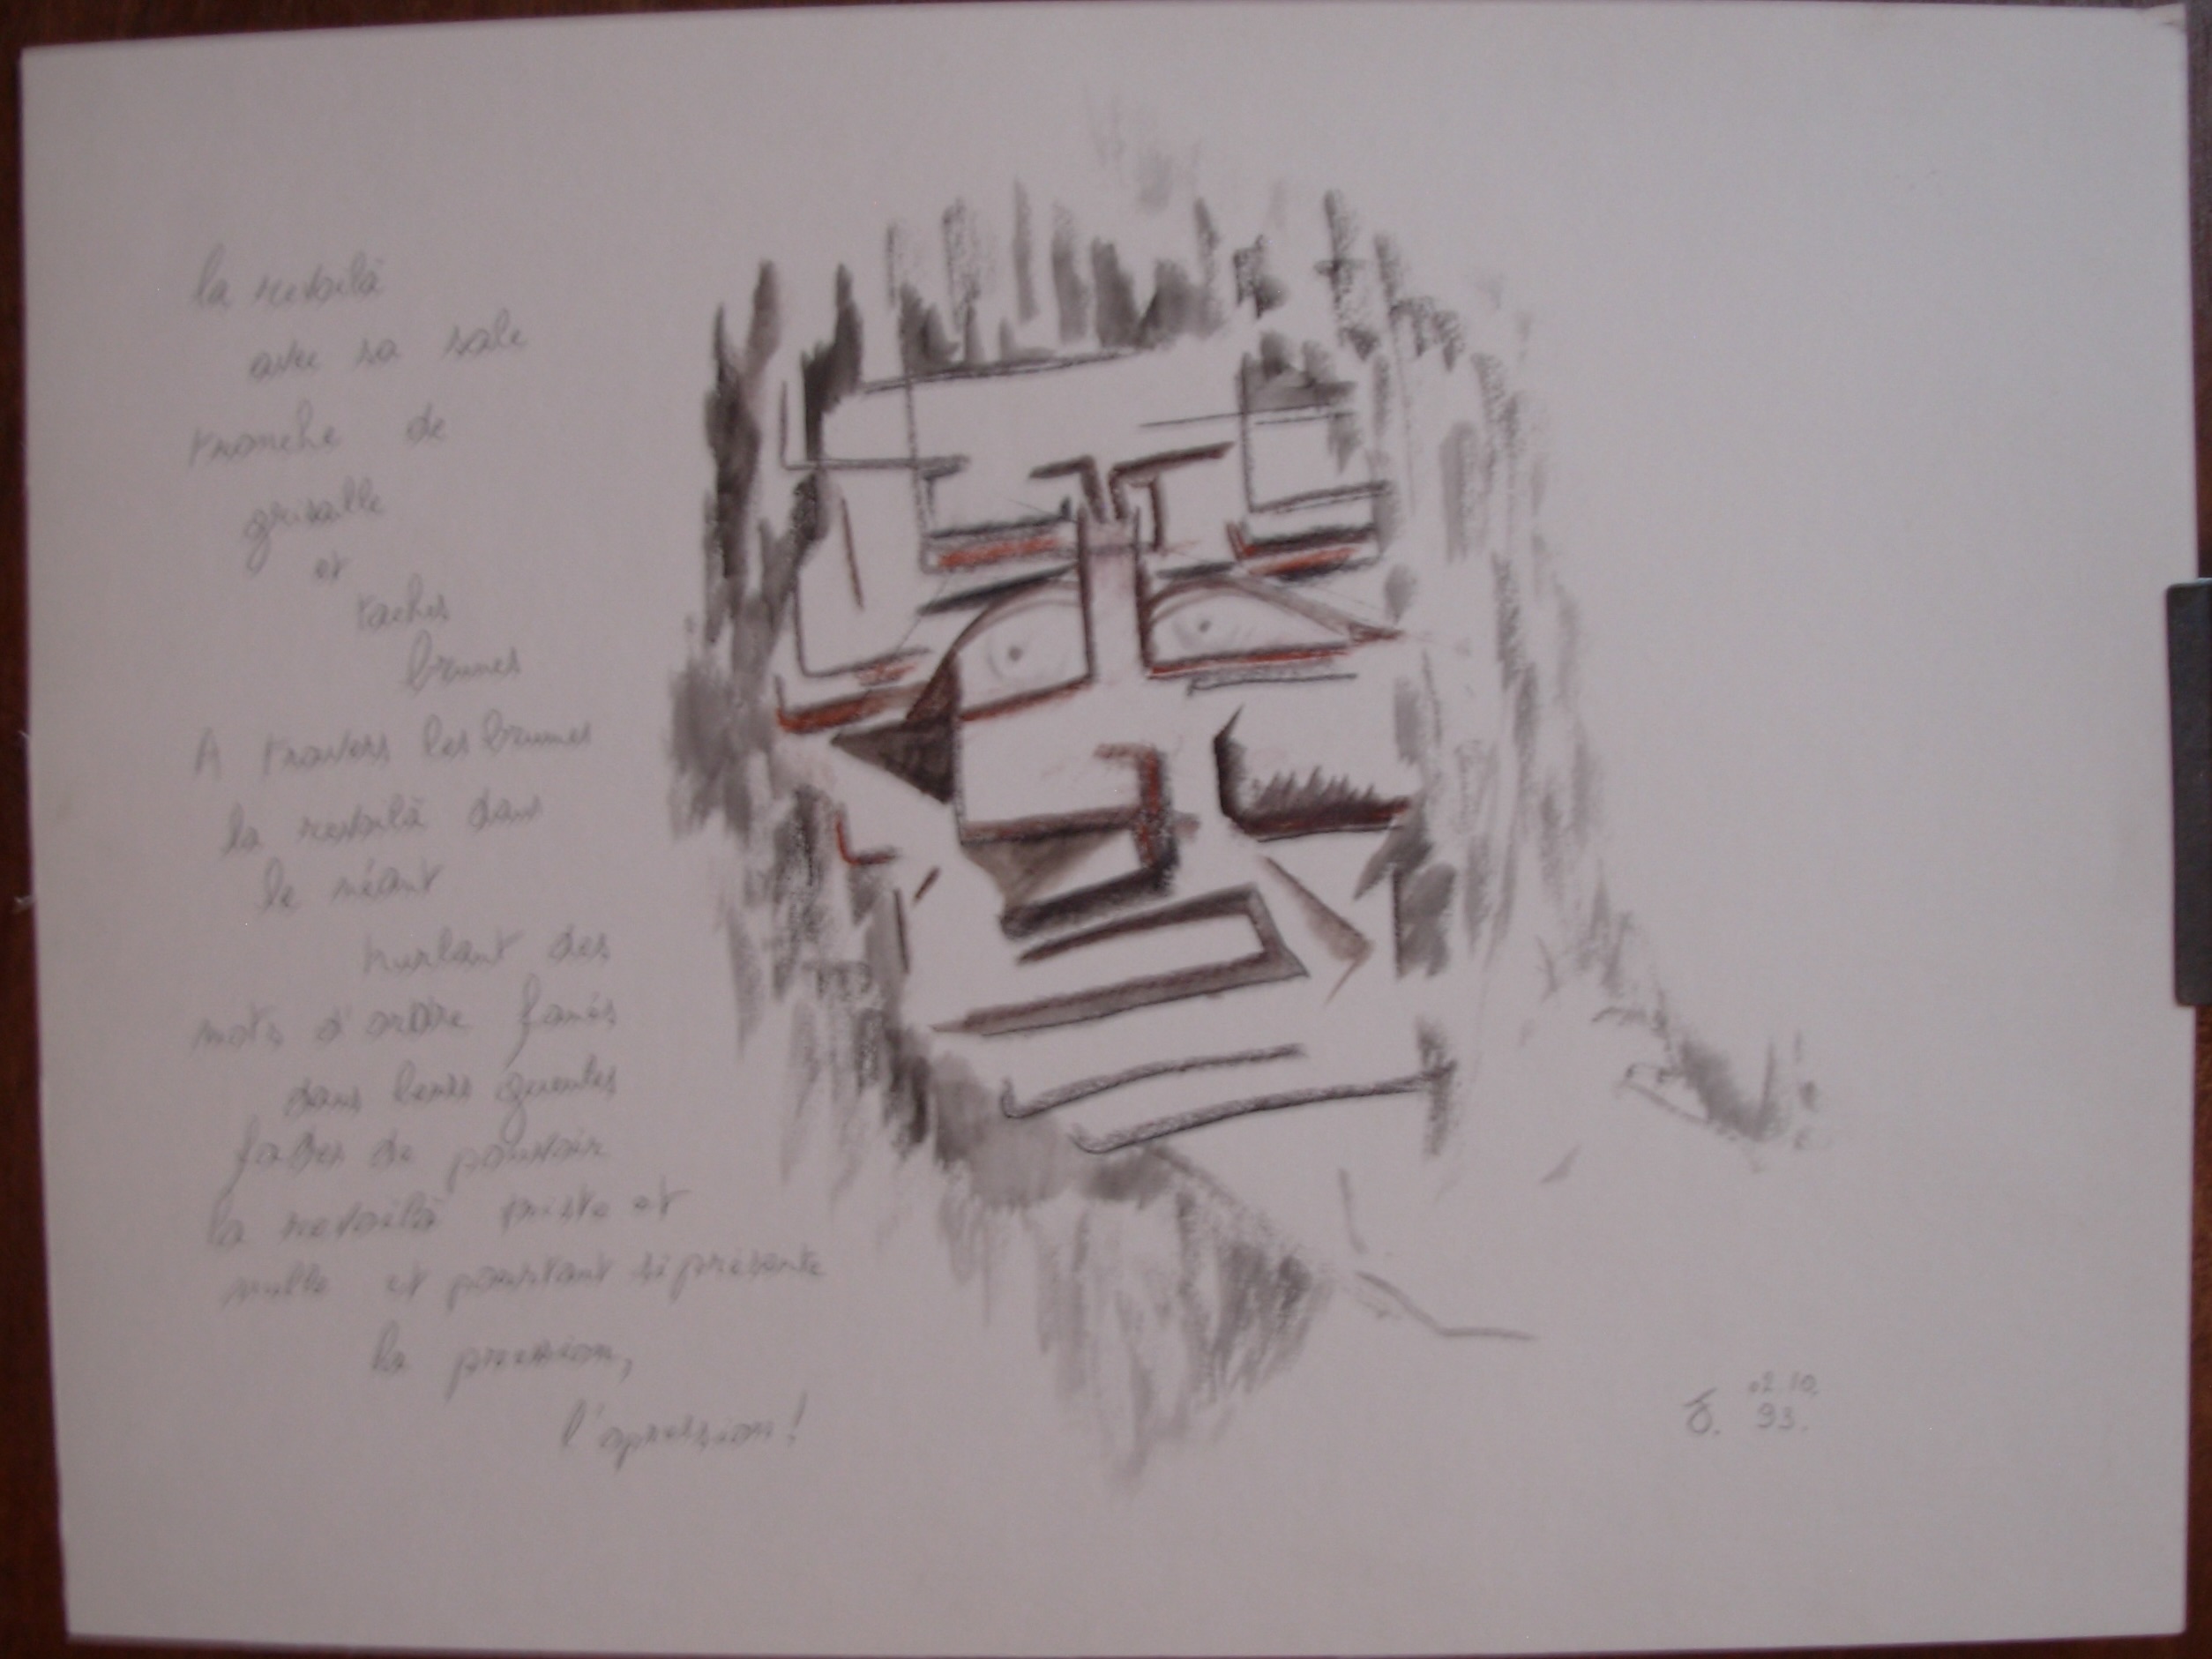 la revoilà
avec sa sale
tronche de
grisaille
et
taches
brunes
A travers les brumes
la revoilà dans
le néant
hurlant des
mots d'ordre fanés
dans leurs gueules
fades de pouvoir
la revoilà triste et
nulle et pourtant si présente
la pression,
l'opression!
02.10.
93.